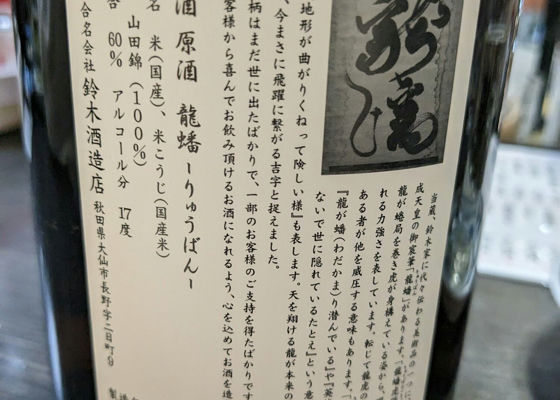 龍蟠
当蔵、鈴木家に代々伝わる美術品の一つに、
成天皇の御宸筆「龍蟠」があります。「龍蟠虎
龍が蜷局を巻き虎が身構えている姿から、
れる力強さを表しています。転じて龍虎の
ある者が他を威圧する意味もあります。
『龍が蟠(わだかま)り潜んでいる』や『英
ないで世に隠れているたとえ』という意
地形が曲がりくねって険しい様』も表します。天を翔ける龍が本来の
、今まさに飛躍に繋がる吉字と捉えました。
柄はまだ世に出たばかりで、一部のお客様のご支持を得たばかりです
客様から喜んでお飲み頂けるお酒になれるよう、心を込めてお酒を造
酒 原酒 龍蟠ーりゅうばんー
名 米(国産)、米こうじ(国産米)
山田錦(100%)
合 60% アルコール分 17度
合名会社 鈴木酒造店 秋田県大仙市長野字二日町9